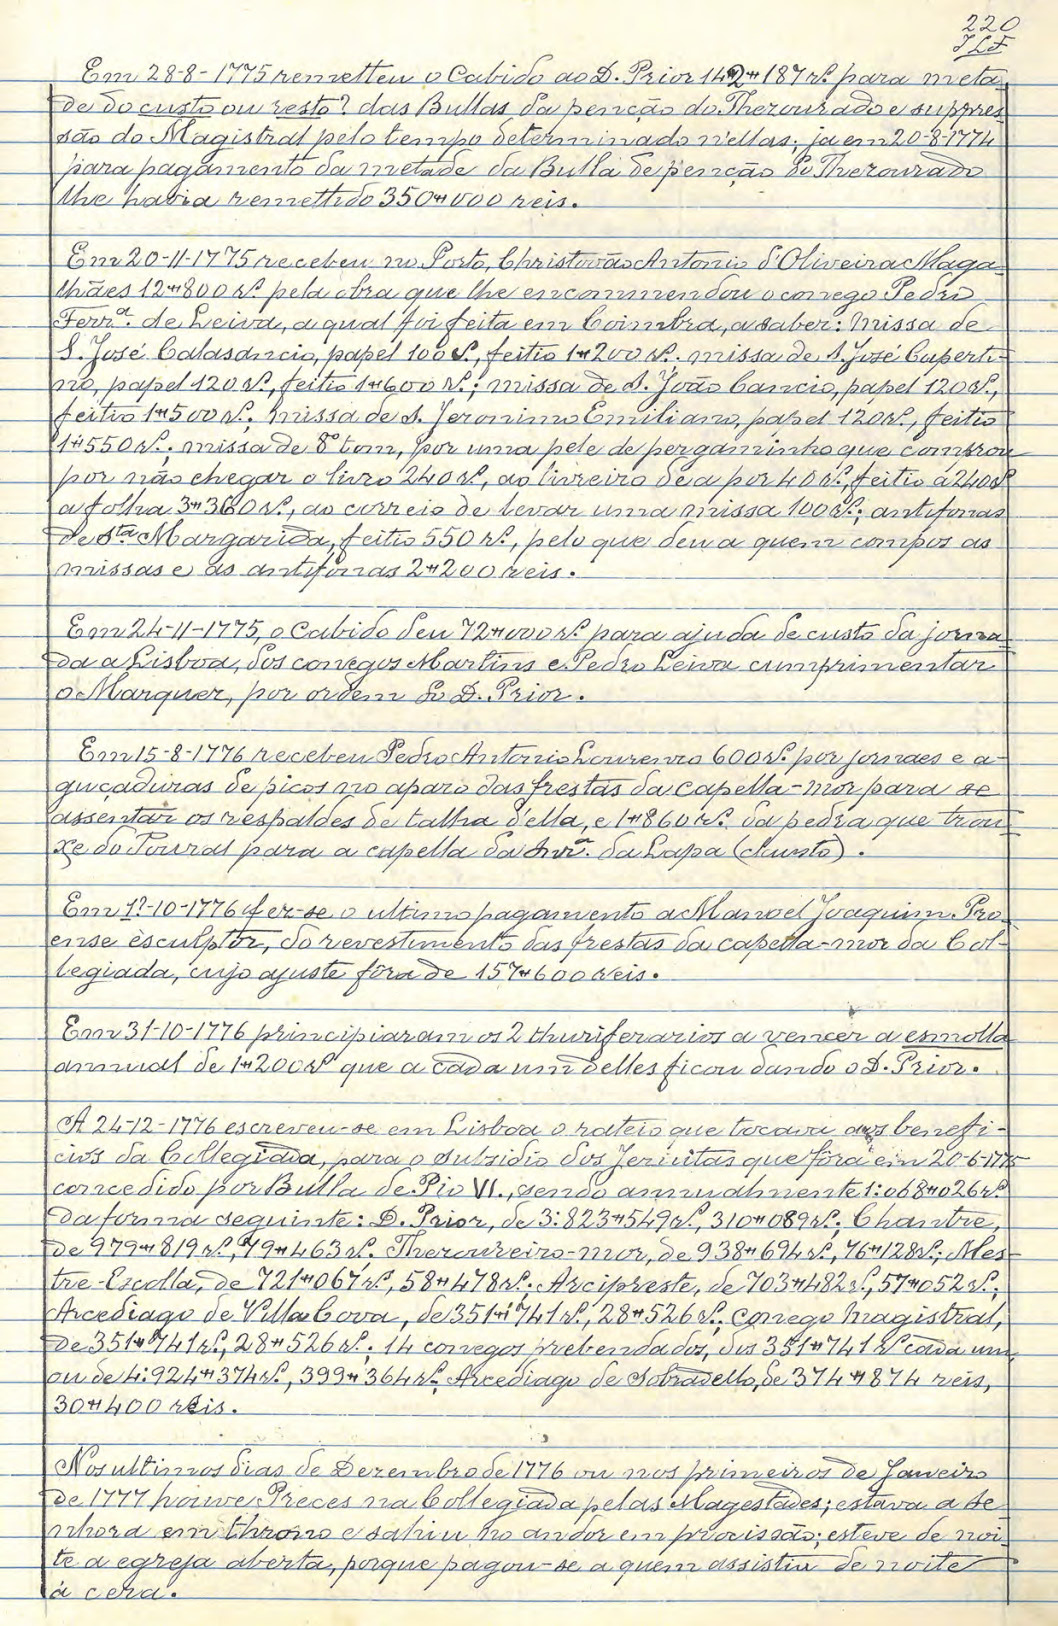 220
JLF
Em 28-8-1775 remetteu o Cabido ao D. Prior 142#187 rs. para meta-
de do custo ou resto? das Bullas da penção do Thezourado e suppres-
são do Magistral pelo tempo determinado n'ellas; ja em 20-8-1774
para pagamento da metade da Bulla de penção do Thezourado
lhe havia remettido 350#000 reis.
Em 20-11-1775 recebeu no Porto, Christovão Antonio d'Oliveira Maga-
lhães 12#800 rs. pela obra que lhe encommendou o conego Pedro
Ferrª. de Leiva, a qual foi feita em Coimbra, a saber: missa de
S. José Calasancio, papel 100 rs., feitio 1#200 rs. missa de S. José Cuperti-
no, papel 120 rs., feitio 1#600 rs.; missa de S. João Cancio, papel 120 rs.,
feitio 1#500 rs.; missa de S. Jeronimo Emiliano, papel 120 rs., feitio
1#550 rs.; missa de 8º tom, por uma pele de pergaminho que comprou
por não chegar o livro 240 rs., ao livreiro de a por 40 rs., feitio a 240 rs
a folha 3#360 rs., ao correio de levar uma missa 100 rs.; antifonas
de Sta Margarida, feitio 550 rs., pelo que deu a quem compos as
missas e as antifonas 2#200 reis.
Em 24-11-1775, o Cabido deu 72#000 rs. para ajuda de custo da jorna-
da a Lisboa, dos conegos Martins e Pedro Leiva cumprimentar
o Marquez, por ordem do D. Prior.
Em 15-8-1776 recebeu Pedro Antonio Lourenço 600 rs. por jornaes e a-
guçaduras de picos no aparo das frestas da capella-mor para se
assentar os respaldes de talha d'ella, e 1#860 rs. da pedra que trou-
xe do Toural para a capella da Snrª. da Lapa (claustro).
Em 1?-10-1776 fez-se o ultimo pagamento a Manoel Joaquim Pro-
ense esculptor, do revestimento das frestas da capella-mor da Col-
legiada, cujo ajuste fôra de 157#600 reis.
Em 31-10-1776 principiaram os 2 thuriferarios a vencer a esmolla
annual de 1#200 rs que a cada um delles ficou dando o D. Prior.
A 24-12-1776 escreveu-se em Lisboa o rateio que tocava aos benefi-
cios da Collegiada, para o subsidio dos Jezuitas que fôra em 20-6-1775
concedido por Bulla de Pio VI., sendo annualmente 1:068#026 rs.
da forma seguinte: D. Prior, de 3:823#549 rs., 310#089 rs.; Chantre,
de 979#819 rs., 79#463 rs.; Thezoureiro-mor, de 938#694 rs., 76#128 rs.; Mes-
tre-Escolla, de 721#067 rs., 58#478 rs.; Arcipreste, de 703#482 rs., 57#052 rs.;
Arcediago de Villa Cova, de 351#741 rs., 28#526 rs.; conego magistral,
de 351#741 rs., 28#526 rs.; 14 conegos prebendados, dos 351#741 rs cada um,
ou de 4:924#374 rs., 399#364 rs. Arcediago de Sobradello, de 374#874 reis,
30#400 reis.
Nos ultimos dias de Dezembro de 1776 ou nos primeiros de Janeiro
de 1777 houve Preces na Collegiada pelas Magestades; estava a Se-
nhora em throno e sahiu no andor em procissão; esteve de noi-
te a egreja aberta, porque pagou-se a quem assistiu de noite
à cera.